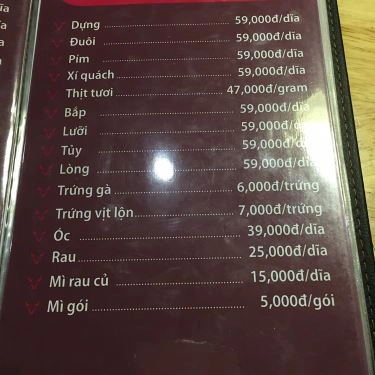 Dựng 59,000đ/dĩa
Đuôi 59,000đ/dĩa
Pím 59,000đ/dĩa
Xí quách 59,000đ/dĩa
Thịt tươi 47,000đ/gram
Bắp 59,000đ/dĩa
Lưỡi 59,000đ/dĩa
Tủy 59,000đ/dĩa
Lòng 59,000đ/dĩa
Trứng gà 6,000đ/trứng
Trứng vịt lộn 7,000đ/trứng
Óc 39,000đ/dĩa
Rau 25,000đ/dĩa
Mì rau củ 15,000đ/dĩa
Mì gói 5,000đ/gói